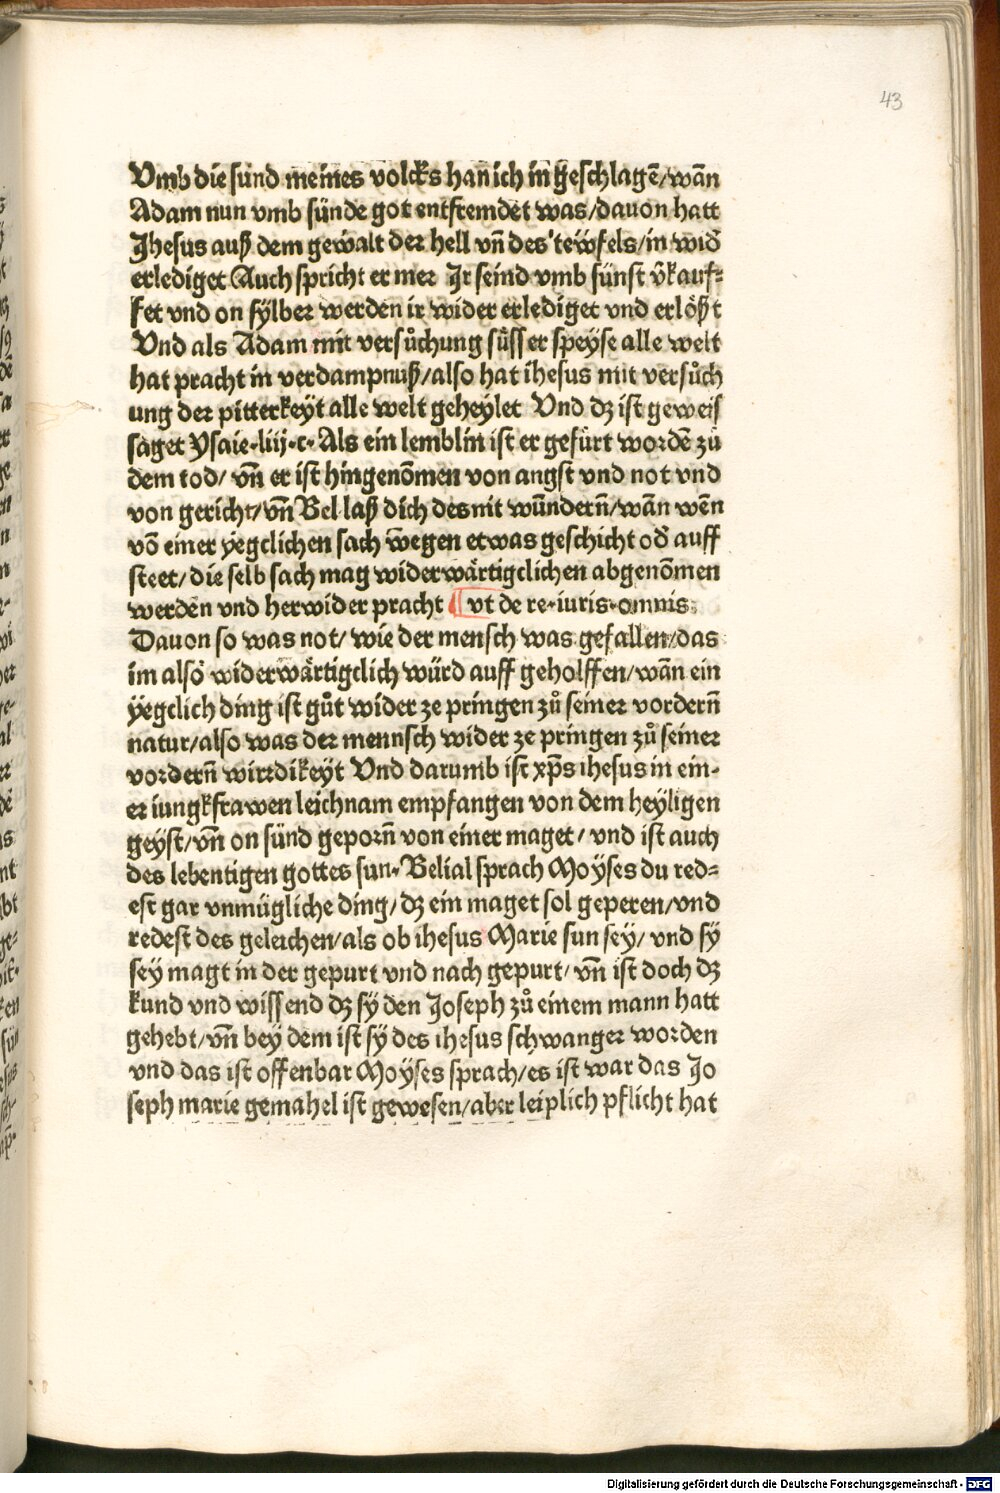 43
Vmb die sünd meines volcks han ich in geschlagē/wān
Adam nun vmb sünde got entfremdet was/dauon hatt
Jhesus auß dem gewalt der hell vn̄ des tewfels/in wid̄
erlediget Auch spricht er mer Jr seind vmb sünst v̄kauf⸗
fet vnd on sylber werden ir wider erlediget vnd erlößt
Vnd als Adam mit versůchung süsser speyse alle welt
hat pracht in verdampnuß/also hat ihesus mit versůch
ung der pitterkeyt alle welt geheylet Vnd dz ist geweis
saget Ysaie·liij·c· Als ein lemblin ist er gefürt wordē zů
dem tod/ vn̄ er ist hingenōmen von angst vnd not vnd
von gericht/vn̄ Bel laß dich des nit wundern̄/wān wēn
vō einer yegclichen sach wegen etwas geschicht od̄ auff
steet/die selb sach mag widerwärtigclichen abgenōmen
werden vnd herwider pracht ¶ vt de re·iuris·omnis.
Dauon so was not/ wie der mensch was gefallen/das
im also widerwärtigclich würd auff geholffen/wān ein
yegclich ding ist gůt wider ze pringen zů seiner vordern̄
natur/also was der mennsch wider ze pringen zů seiner
vordern̄ wirrdikeyt Vnd darumb ist xp̄s ihesus in ein⸗
er iungkfrawen leichnam empfangen von dem heyligen
geyst/vn̄ on sünd geporn̄ von einer maget/ vnd ist auch
des lebentigen gottes sun· Belial sprach Moyses du red⸗
est gar vnmügliche ding/dz ein maget sol geperen/vnd
redest des geleichen/als ob ihesus Marie sun sey/ vnd sy
sey magt in der gepurt vnd nach gepurt/ vn̄ ist doch dz
kund vnd wissend dz sy den Joseph zů einem mann hatt
gehebt/vn̄ bey dem ist sy des ihesus schwanger worden
vnd das ist offenbar Moyses sprach/es ist war das Jo
seph marie gemahel ist gewesen/aber leiplich pflicht hat
Digitalisierung gefördert durch die Deutsche Forschungsgemeinschaft - DFG